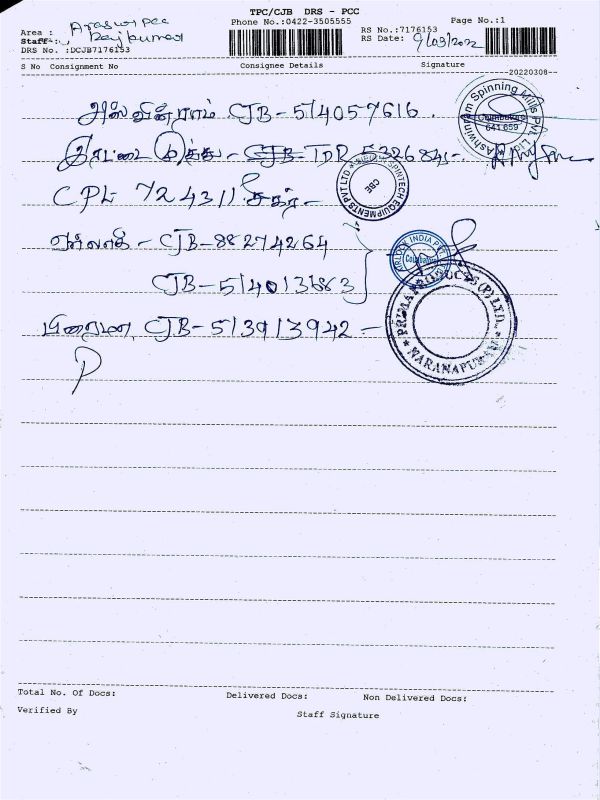 TPC/CJB DRS - PCC
Phone No.:0422-3505555
Page No.:1
Area : PCC
Staff : Rajkumar
DRS No. :DCJB7176153
RS No.:7176153
RS Date: 9/03/2022
S No Consignment No Consignee Details Signature
20220308
CJB-514057616.
Ashwinram Spinning Mills Pvt. Ltd
Coimbatore
641 659
முத்து - CJB TDR 5326841-
SPINTECH EQUIPMENTS PVT LTD
CBE
CPL 724311 சேகர் -
ஏர்லாக் - CJB-88274264
AIRLOCK INDIA PVT.
Coimbatore
CJB-514013683
பிரைமா, CJB-513913942 -
PRIMA PRODUCTS (P) LTD.
NARANAPURAM
P
Total No. Of Docs: Delivered Docs: Non Delivered Docs:
Verified By Staff Signature